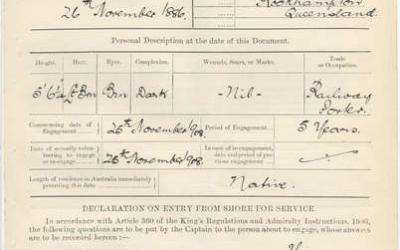 26th November 1886.
Rockhampton
Queensland.
Personal Description at the date of this Document.
Height. Hair. Eyes. Complexion. Wounds, Scars, or Marks. Trade or Occupation.
5' 6½ Lt Brn Brn Dark -Nil- Railway Porter.
Commencing date of Engagement 26th November 1908. Period of Engagement 5 Years.
Date of actually volunteering to engage or re-engage 26th November 1908.
Length of residence in Australia immediately preceding this date Native.
DECLARATION ON ENTRY FROM SHORE FOR SERVICE.
In accordance with Article 360 of the King's Regulations and Admiralty Instructions, 1906,
the following questions are to be put by the Captain to the person about to engage, whose answers
are to be recorded hereon :—